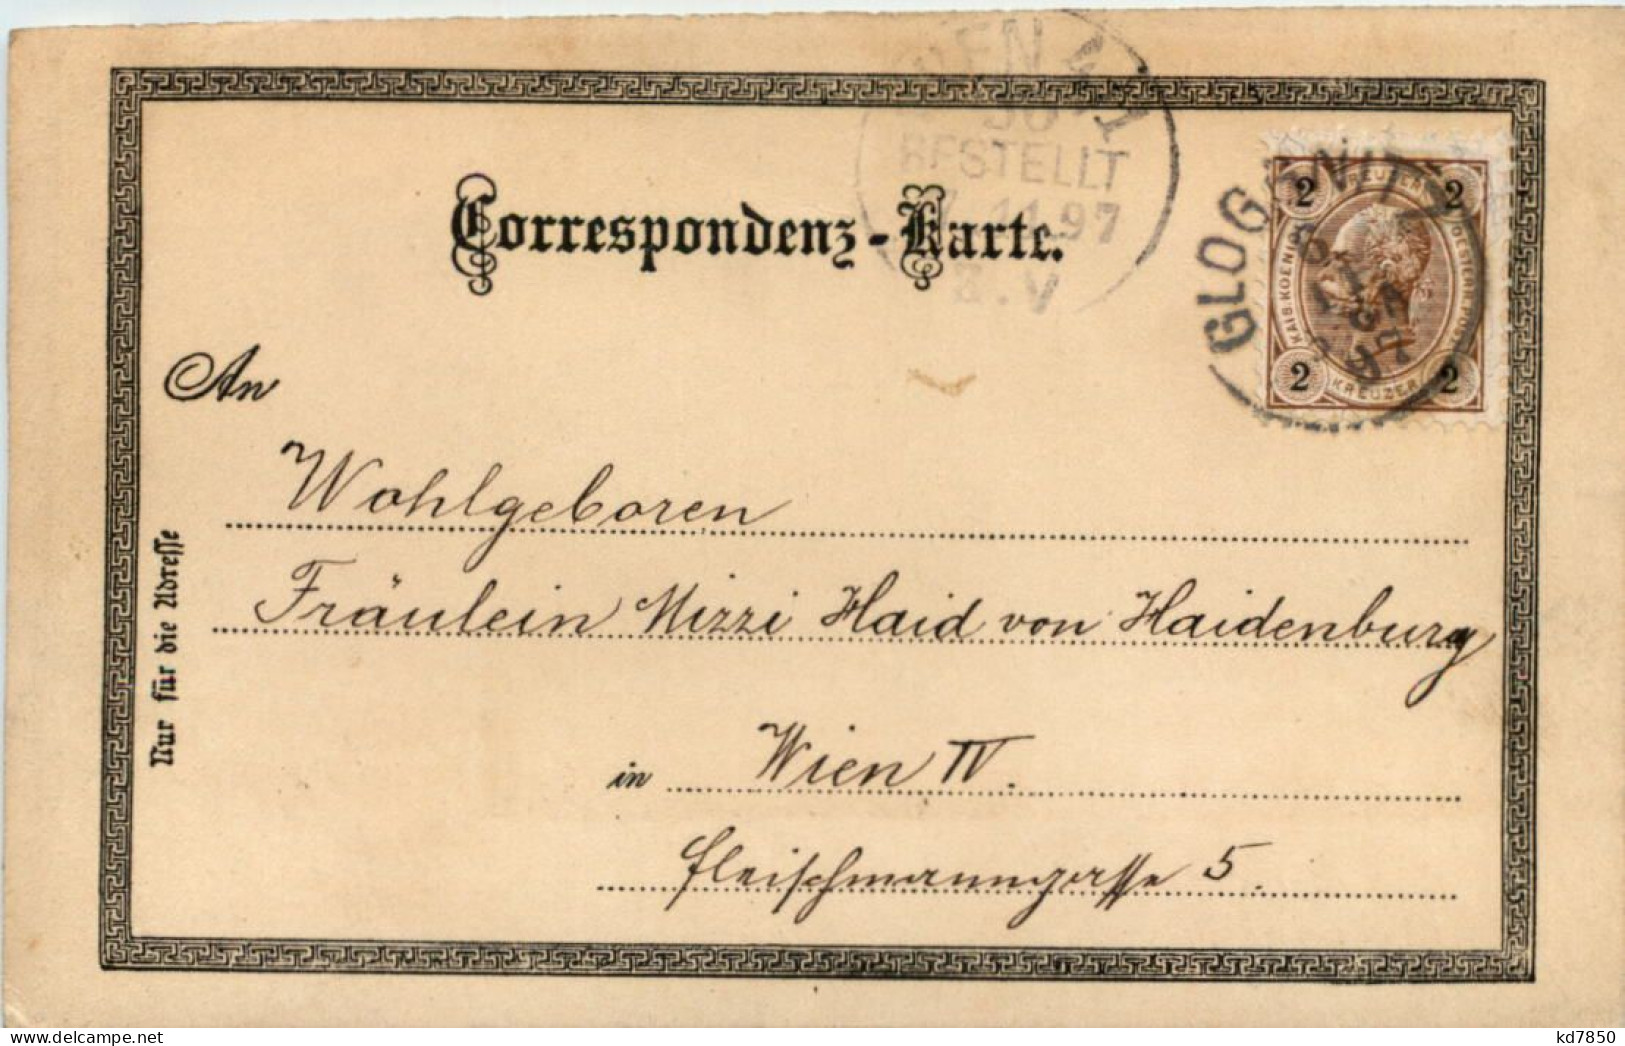 WIEN 4/1
BESTELLT
11.97
8.V
Correspondenz-Karte.
GLOGGNITZ
97
2 KREUZER 2
KAIS. KOENIGL. OESTERR. POST
2 KREUZER 2
An
Wohlgeboren
Fräulein Mizzi Haid von Haidenburg
in Wien IV.
Fleischmanngasse 5.
Nur für die Adresse
www.delcampe.net
kd7850